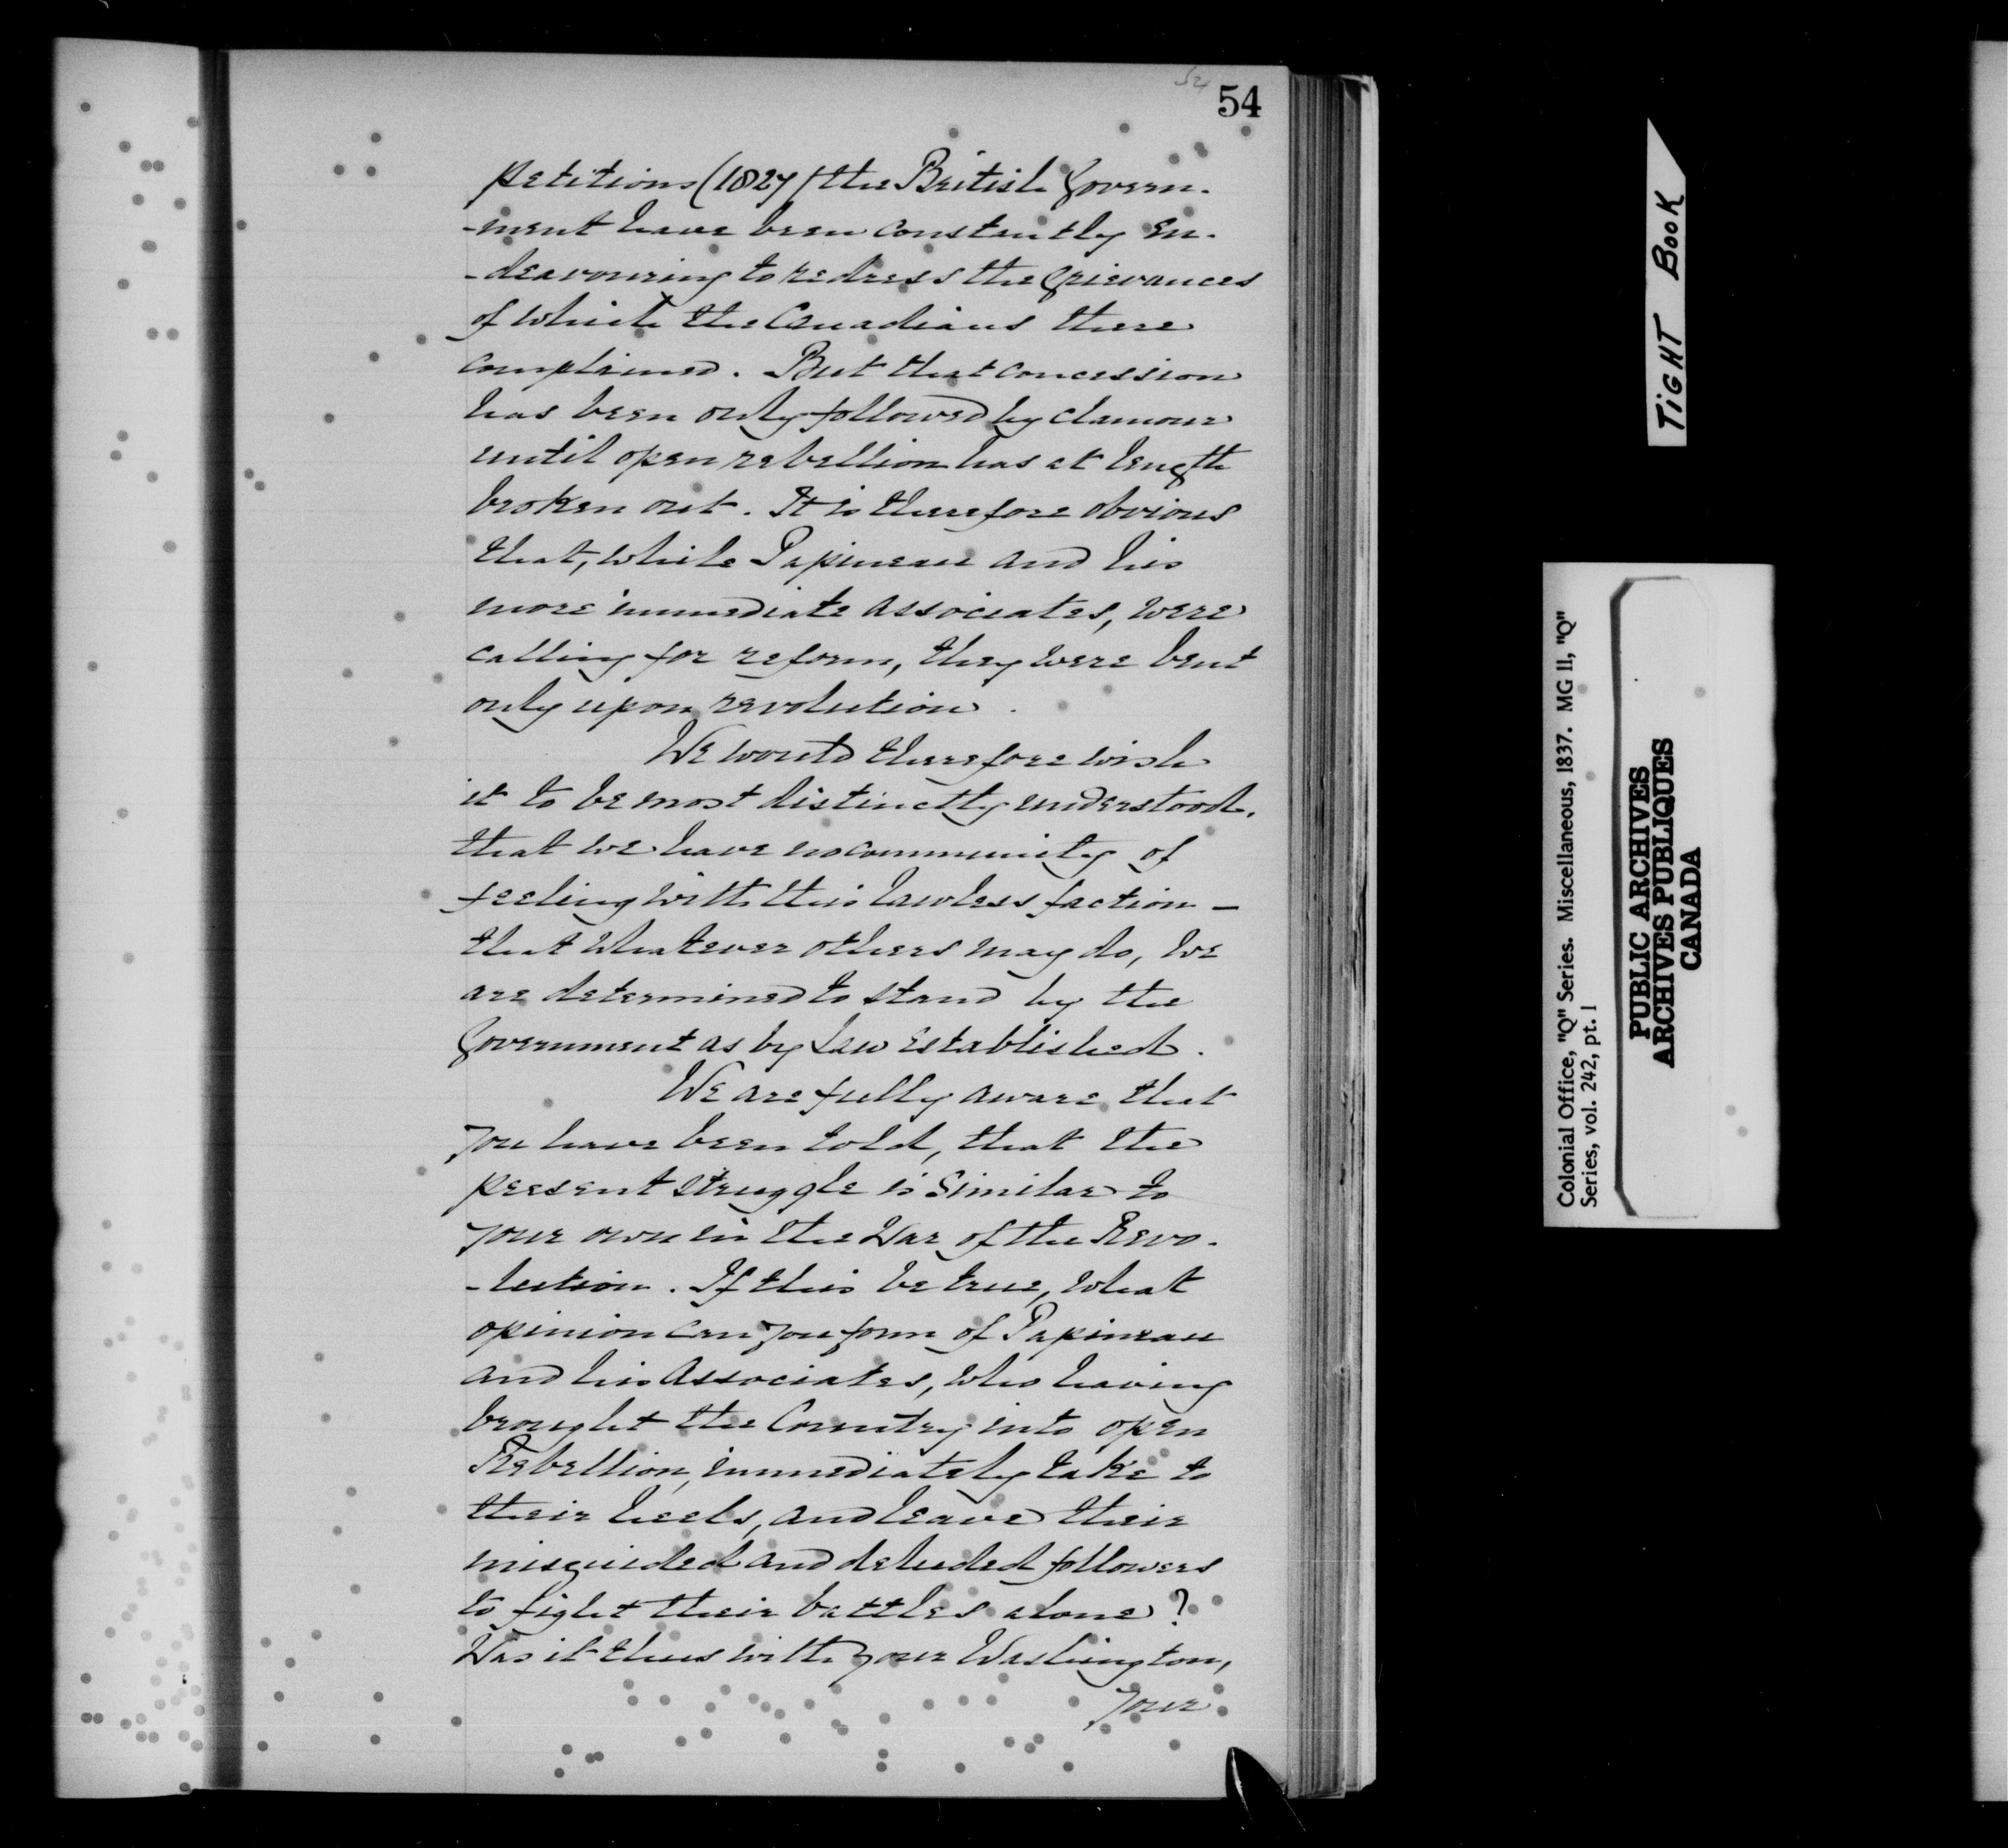 54
54
petitions (1827) the British Govern-
-ment have been constantly en-
-deavouring to redress the Grievances
of which the Canadians there
complained. But that concession
has been only followed by clamour
until open rebellion has at length
broken out. It is therefore obvious
that, while Papineau and his
more immediate associates, were
calling for reform, they were bent
only upon revolution.
We would therefore wish
it to be most distinctly understood.
that we have no community of
feeling with this lawless faction —
that whatever others may do, we
are determined to stand by the
Government as by Law established.
We are fully aware that
you have been told, that the
present struggle is similar to
your own in the War of the Revo-
-lution. If this be true, what
opinion can you form of Papineau
and his Associates, who having
brought the Country into open
Rebellion, immediately take to
their heels, and leave their
misguided and deluded followers
to fight their battles alone?
Was it thus with your Washington,
your
TIGHT BOOK
Colonial Office, "Q" Series. Miscellaneous, 1837. MG 11, "Q"
Series, vol. 242, pt. 1
PUBLIC ARCHIVES
ARCHIVES PUBLIQUES
CANADA